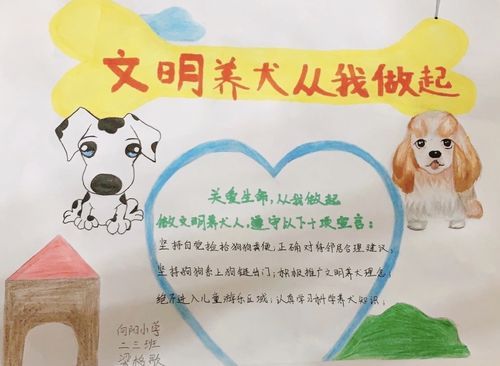 文明养犬从我做起
关爱生命,从我做起
做文明养犬人,遵守以下十项宣言:
坚持自觉捡拾狗狗粪便,正确对待邻居合理建议;
坚持狗狗系上狗链出门;积极推广文明养犬理念;
绝不进入儿童游乐区域;认真学习科学养犬知识;
向阳小学
二三班
梁 歌